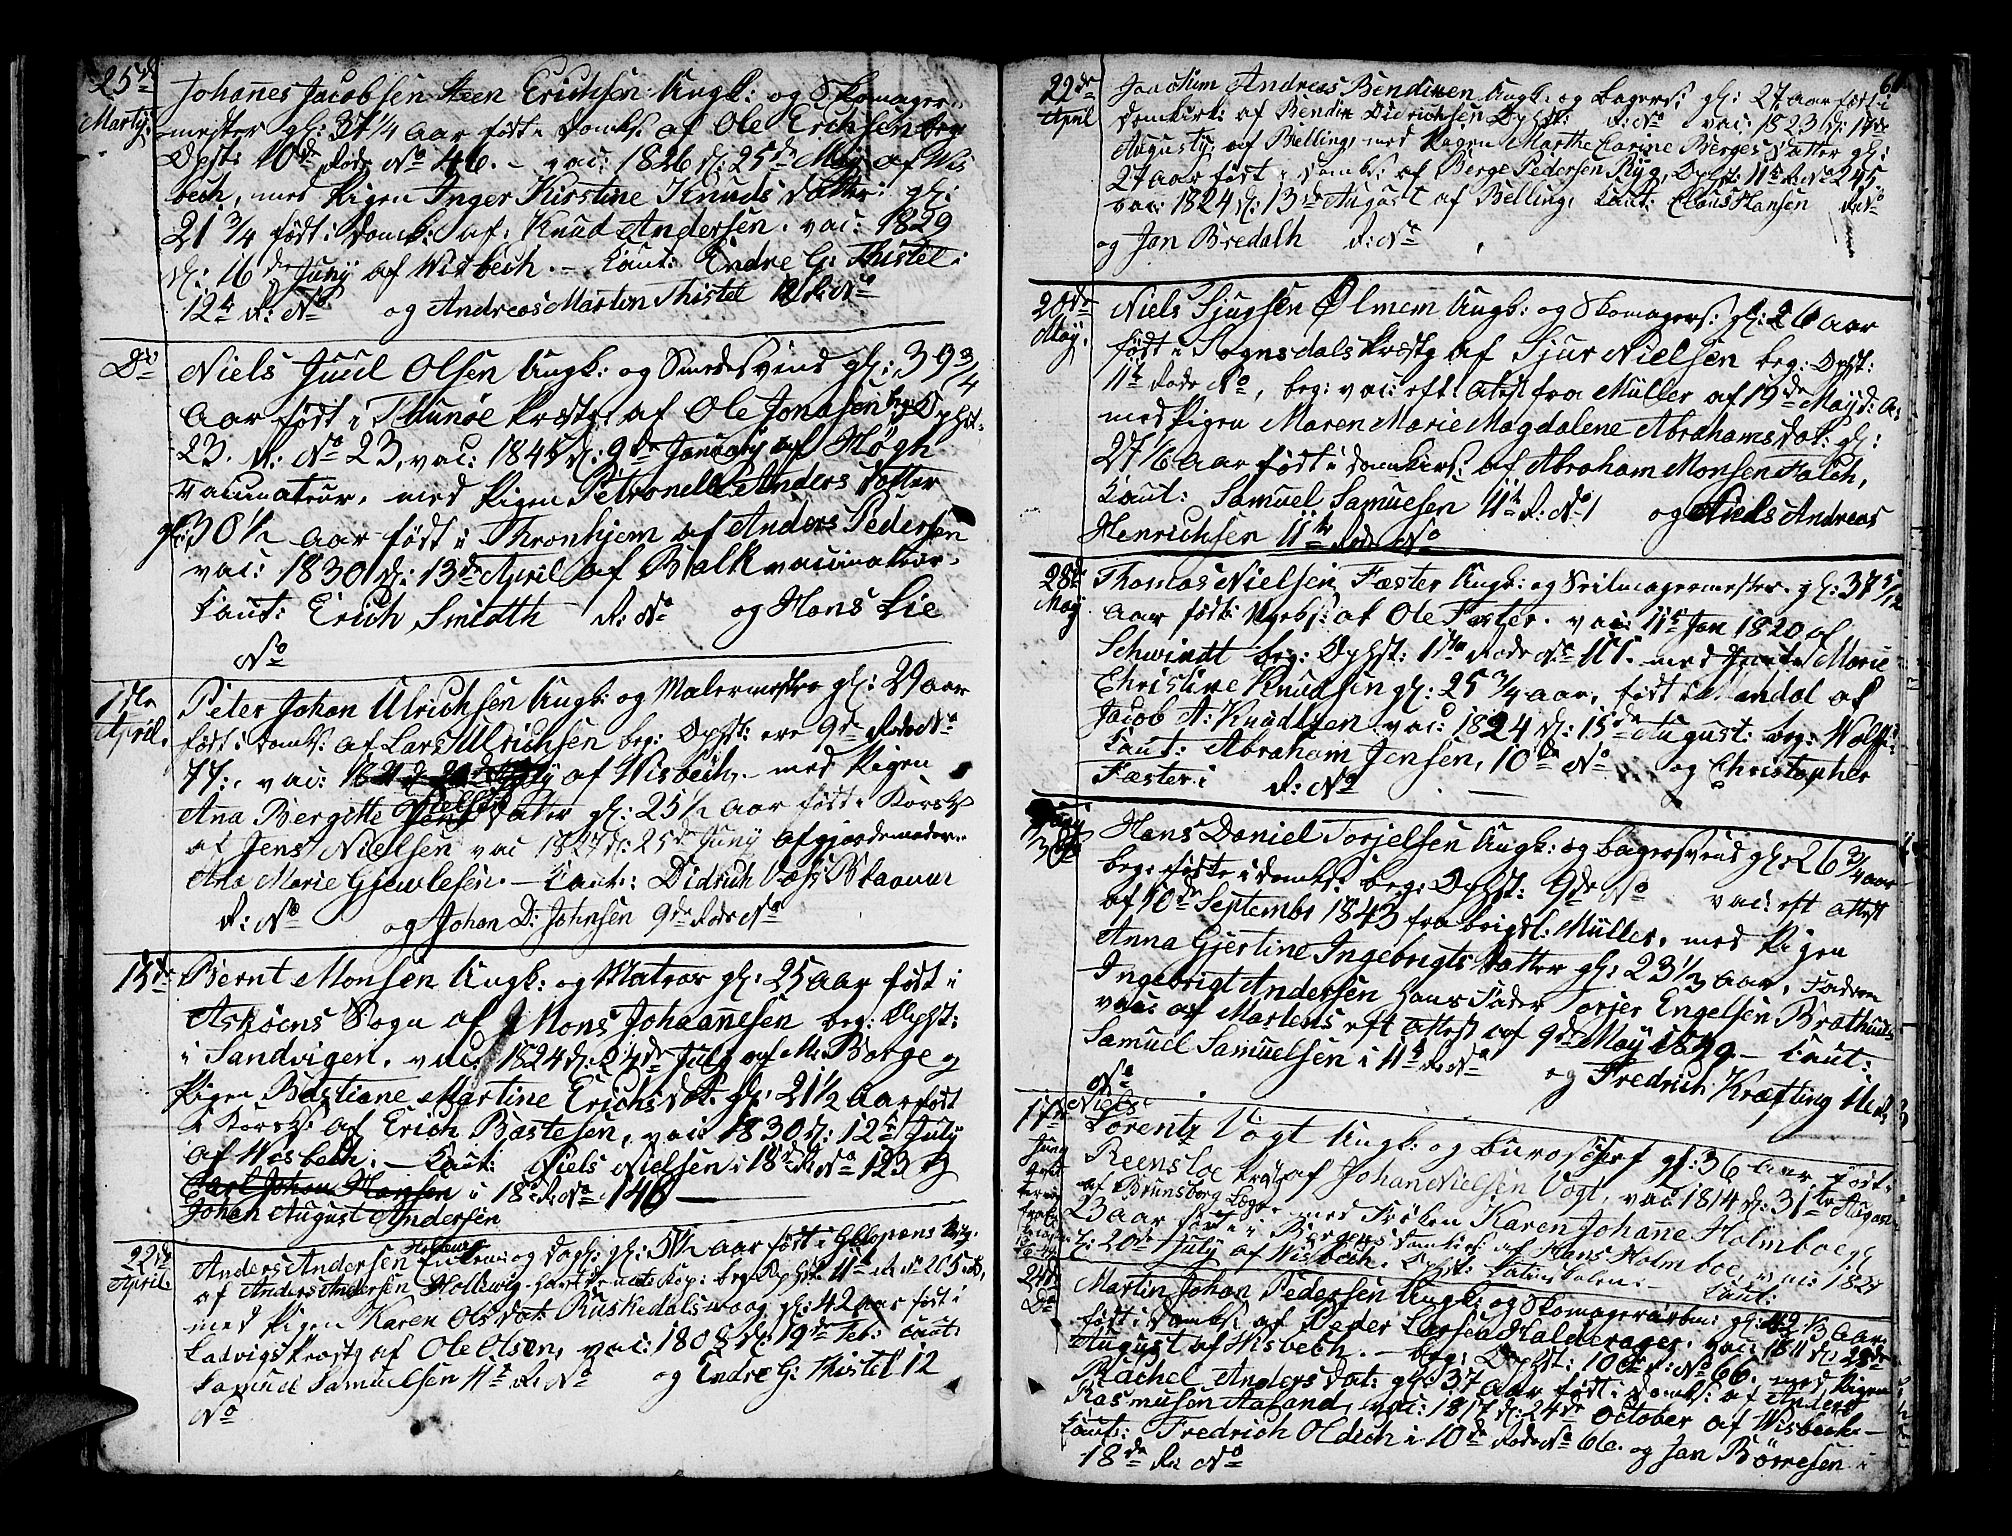 25de Martÿ: Johanes Jacobsen Steen Erichsen Ungk: og Skomager-
mester gl: 37 1/4 aar født i Domk: af Ole Erichsen beg
Ophst: 10de Rode No 46. – vac: 1826 d: 25de Maÿ af Wis
bech, med Pigen Inger Kirstine Knuds Datter gl:
21 3/4 født i Domk: af Knud Andersen. vac: 1829
d: 16de Junÿ af Wisbech. – Caut: Endre G: Thistel i
12te R: No og Andreas Morten Thistel 12 R: No
Do Niels Juul Olsen Ungk: og Smedesvend gl: 39 3/4
aar født i Thunøe Præstg: af Ole Jonasen beg Ophst:
23. R: No 23, vac: 1845 d: 9de January af Høgh
vaccinateur, med Pigen Petronelle Anders Datter
gl: 30 1/2 aar født i Thronhjem af Anders Pedersen
vac: 1830 d: 13de April af Balk vaccinateur.
Caut: Erich Smidth R: No og Hans Lie
No
1ste April. Peter Johan Ulrichsen Ungk: og Malermester gl: 29 aar
født i Domk: af Lars Ulrichsen beg: Ophst: 9de Rode No
77:, vac: af Wisbech, – med Pigen
Ana Bergitte Nielsen Datter gl: 25 1/2 aar født i Korsk:
af Jens Nielsen vac 1827 d: 25de Junÿ af gjordemoder
Ana Marie Gjewlesen. – Caut: Didrich
R: No og Johan D: Johnsen 9de Rode No
15de Bernt Monsen Ungk: og Matros gl: 25 aar født i
Askøens Sogn af Mons Johannesen beg: Ophst:
i Sandvigen, vac: 1824 d: 24de July af M: Borge og
Pigen Bastiane Martine Erichs Dat: gl: 21 1/2 aar født
i Korsk: af Erich Bastesen, vac: 1830 d: 12te July
af Wisbech. – Caut: Niels Nielsen i 18de R: No 123 og
Carl Johan Hansen i 18de R: No 146 –
Johan August Andersen
22de April. Anders Andersen Enkem: og Dagk: gl: 51 1/2 aar født i
af Anders Andersen Hollewig beg: Ophst: 11te R: No 205
med Pigen Karen Ols Dat: gl: 42 aar født i
Ladvigs Præstg: af Ole Olsen, vac: 1808 d: 19de Feb: Caut:
Samuel Samuelsen 11te R: No og Endre G: Thistel 12
No
22de April Joachim Andreas Bendixen Ungk: og Bagers: gl: 27 aar født i
Domkirk: af Bendix Didrichsen Ophst: R: No vac: 1823 d: 14de
Augusty af Belling, med Pigen Marthe Carine Berges Datter gl:
27 aar født i Domk: af Berge Pedersen Ryg, Ophst: 11te R: No 245
vac: 1824 d: 13de August af Belling, Caut: Claus Hansen R: No
og Jan Bredalh R: No
20de Maÿ. Niels Sjugsen Ølmem Ungk: og Skomagers: gl: 26 aar
født i Sogndals Præstg af Sjur Nielsen beg: Ophst:
11te Rode No , beg: vac: eft attest fra Müller af 19de Maÿ d: A:
med Pigen Maren Marie Magdalene Abrahamsdat: gl:
27 1/6 aar født i Domkirk: af Abraham Monsen Falch,
Caut: Samuel Samuelsen 11te R: No 1 og Niels Andreas
Henrichsen 11te Rode No
28de Maÿ Thomas Nielsen Fæster Ungk: og Seilmagermester gl: 37 5/12
aar født i Nyek: af Ole Fæster. vac: 11te Jan 1820 af
Schwindt beg: Ophst: 17de Rode No 101. med Marie
Christine Knudsen gl: 25 3/4 aar, født i Mandal af
Jacob A: Knudtzen vac: 1824 d: 15de August:
Caut: Abraham Jensen, 10de No og Christopher
Fæster i R: No
Hans Daniel Torjelsen Ungk: og bagersvend gl: 26 3/4 aar
beg: født i Domk: beg: Ophst: 9de No vac: eft attest
af 10de Septembr 1843 fra brigdl: Müller, med Pigen
Anna Gjertine Ingebrigts Datter gl: 23 1/2 aar, Faderen
Ingebrigt Andersen hans Fader Torjer Engelsen
vac: af Martens eft attest af 9de Maÿ 1849 – Caut:
Samuel Samuelsen i 11te R: No og Fredrich Kræfting
No
17de Niels
Lorentz Vogt Ungk: og gl: 36 aar født i
af Johan Nielsen Vogt, vac: 1814 d: 31te August
af Brunsborg med Frøken Karen Johane Holmboe gl:
23 aar født i Bergens Domkirk: af Hans Holmboe, vac: 1827
d: 20de July af Wisbech. Ophst: Latinskolen. Caut:
24de Do Martin Johan Pedersen Ungk: og Skomager gl: aar
født i Domk: af Peder Larsen Halderager. vac: 1811 d: 28de
August af Wisbech. – beg: Ophst: 10de R: No 66. med Pigen
Rachel Anders Dat: gl: 37 aar født i Domk: af Anders
Rasmusen Aasand, vac: 1817 d: 24de October af Wisbech –
Caut: Fredrich Oldich i 10de Rode No 66. og Jan Børresen i
18de R: No